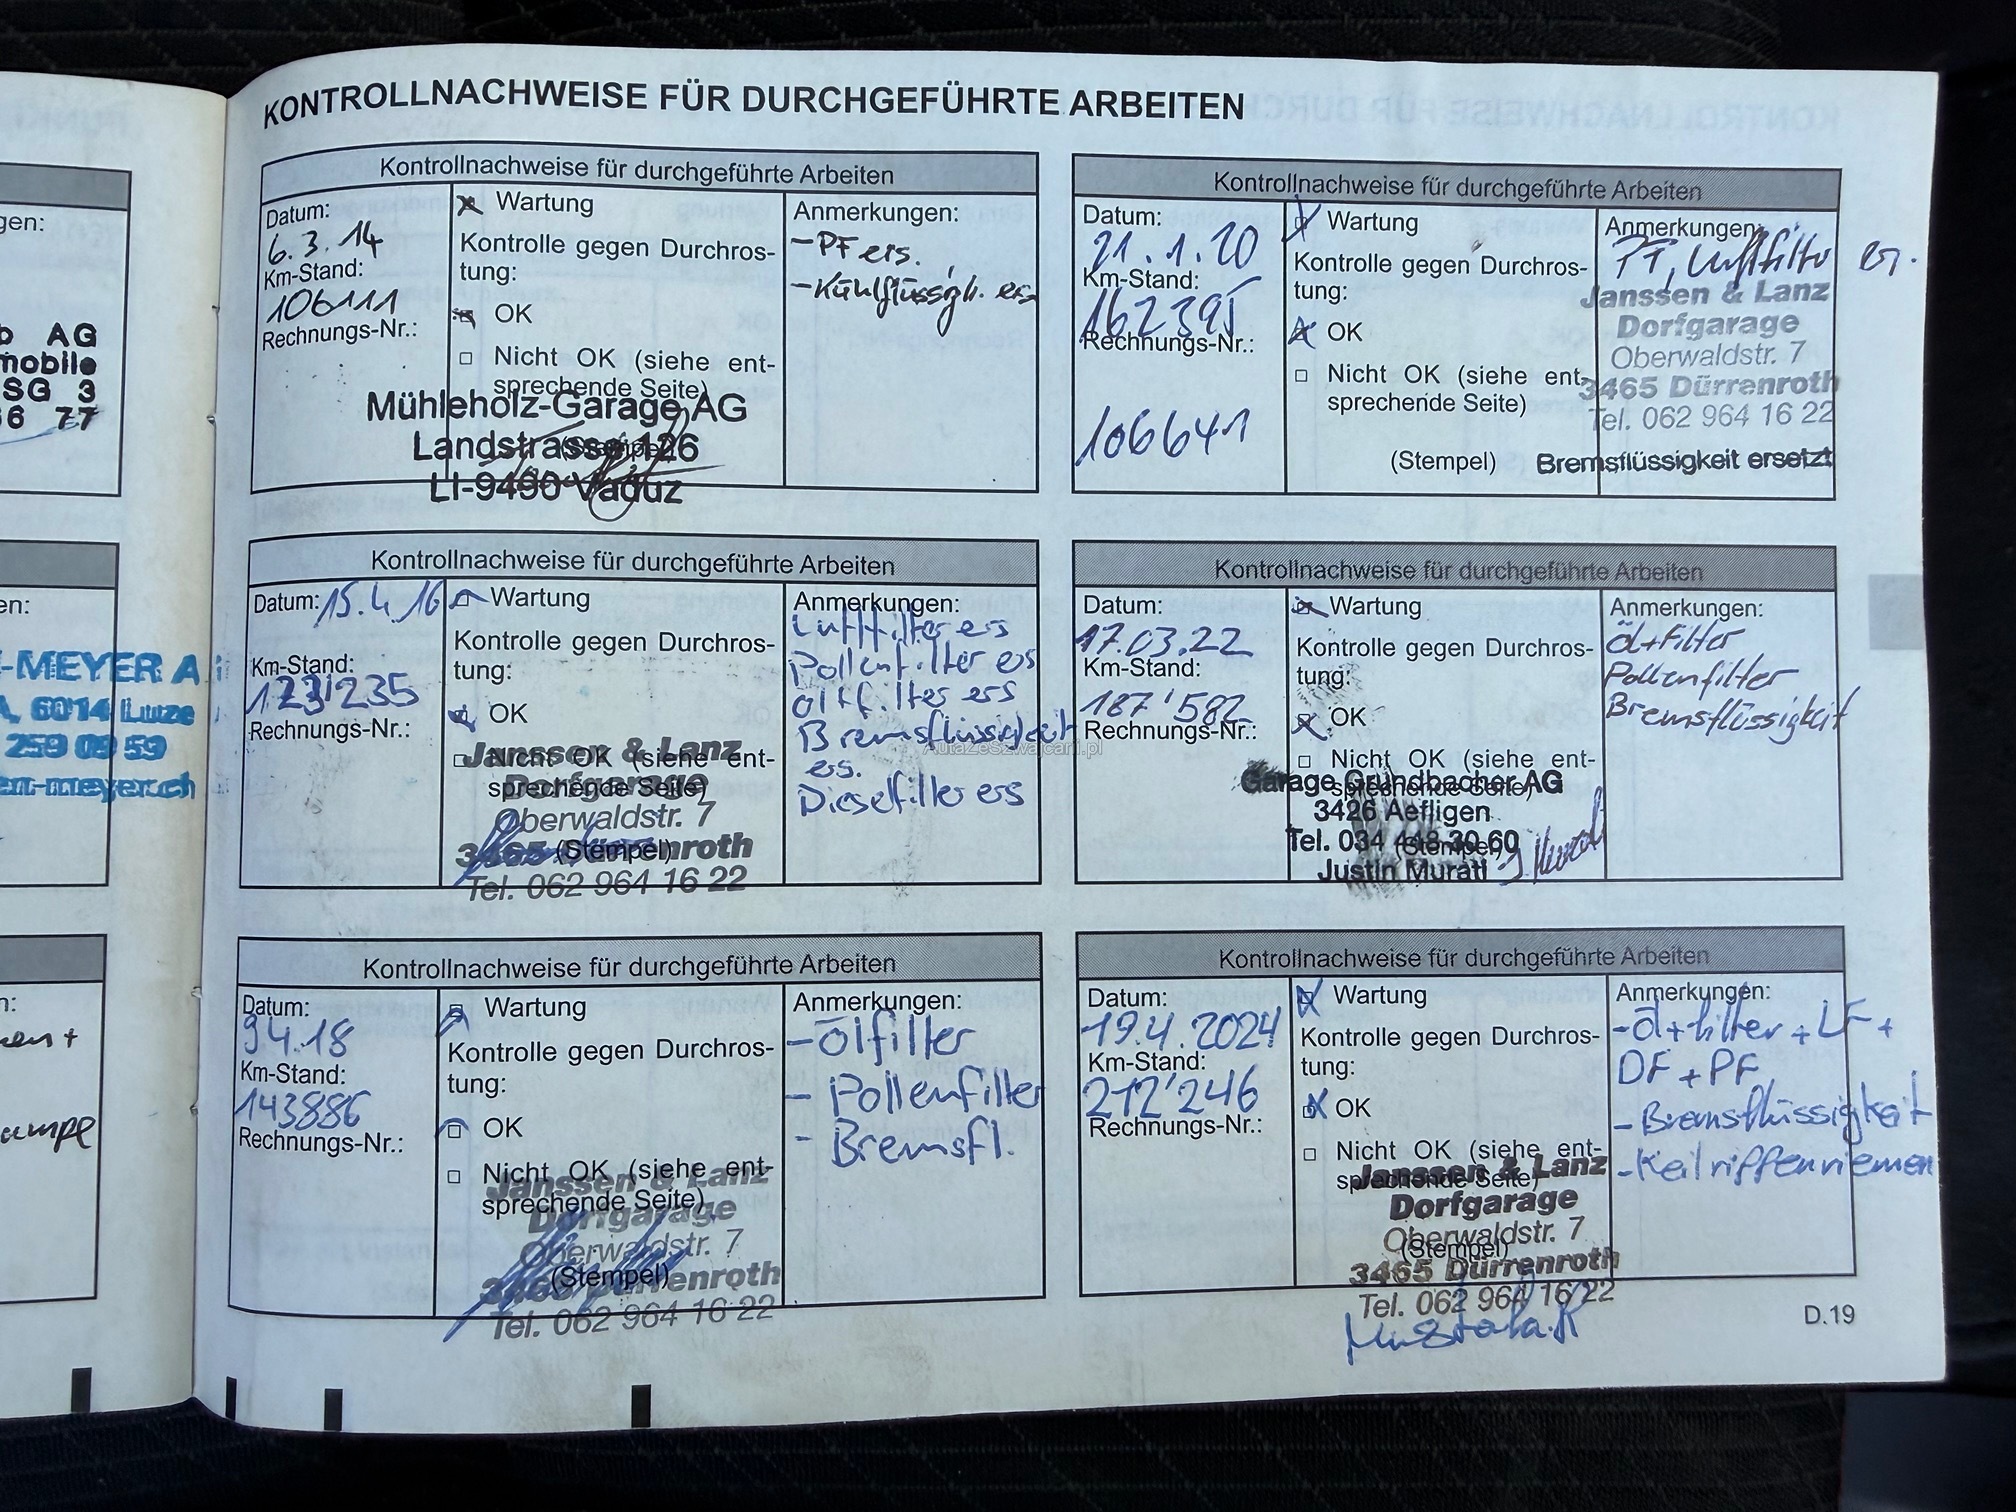 KONTROLLNACHWEISE FÜR DURCHGEFÜHRTE ARBEITEN
Kontrollnachweise für durchgeführte Arbeiten
Datum:
6.3.14
Km-Stand:
106111
Rechnungs-Nr.:
Wartung
Kontrolle gegen Durchros-
tung:
OK
Nicht OK (siehe ent-
sprechende Seite)
(Stempel)
Mühleholz-Garage AG
Landstrasse 126
LI-9490 Vaduz
Anmerkungen:
- PF ers.
- Kühlflüssigk. ers
Kontrollnachweise für durchgeführte Arbeiten
Datum: 15.4.16
Km-Stand:
123'235
Rechnungs-Nr.:
Wartung
Kontrolle gegen Durchros-
tung:
OK
Nicht OK (siehe ent-
sprechende Seite)
(Stempel)
Janssen & Lanz
Dorfgarage
Oberwaldstr. 7
3465 Dürrenroth
Tel. 062 964 16 22
Anmerkungen:
Luftfilter ers
Pollenfilter ers
ölfilter ers
Bremsflüssigkeit
ers.
Dieselfilter ers
Kontrollnachweise für durchgeführte Arbeiten
Datum:
9.4.18
Km-Stand:
143886
Rechnungs-Nr.:
Wartung
Kontrolle gegen Durchros-
tung:
OK
Nicht OK (siehe ent-
sprechende Seite)
(Stempel)
Janssen & Lanz
Dorfgarage
Oberwaldstr. 7
3465 Dürrenroth
Tel. 062 964 16 22
Anmerkungen:
- Ölfilter
- Pollenfilter
- Bremsfl.
Kontrollnachweise für durchgeführte Arbeiten
Datum:
21.1.20
Km-Stand:
162395
Rechnungs-Nr.:
106641
Wartung
Kontrolle gegen Durchros-
tung:
OK
Nicht OK (siehe ent-
sprechende Seite)
(Stempel)
Anmerkungen:
PF, Luftfilter er.
Janssen & Lanz
Dorfgarage
Oberwaldstr. 7
3465 Dürrenroth
Tel. 062 964 16 22
Bremsflüssigkeit ersetzt
Kontrollnachweise für durchgeführte Arbeiten
Datum:
17.03.22
Km-Stand:
187'582
Rechnungs-Nr.:
Wartung
Kontrolle gegen Durchros-
tung:
OK
Nicht OK (siehe ent-
sprechende Seite)
(Stempel)
Garage Grundbacher AG
3426 Aefligen
Tel. 034 448 30 60
Justin Murati
Anmerkungen:
Öl+Filter
Pollenfilter
Bremsflüssigkeit
Kontrollnachweise für durchgeführte Arbeiten
Datum:
19.4.2024
Km-Stand:
212'246
Rechnungs-Nr.:
Wartung
Kontrolle gegen Durchros-
tung:
OK
Nicht OK (siehe ent-
sprechende Seite)
(Stempel)
Janssen & Lanz
Dorfgarage
Oberwaldstr. 7
3465 Dürrenroth
Tel. 062 964 16 22
Anmerkungen:
- Öl+filter + LF +
DF + PF
- Bremsflüssigkeit
- Keilriffenriemen
D.19
AutaZeSzwajcarii.pl
gen:
AG
mobile
SG 3
77
en:
-MEYER A
6014
259 09 59
en-meyer.ch
n: